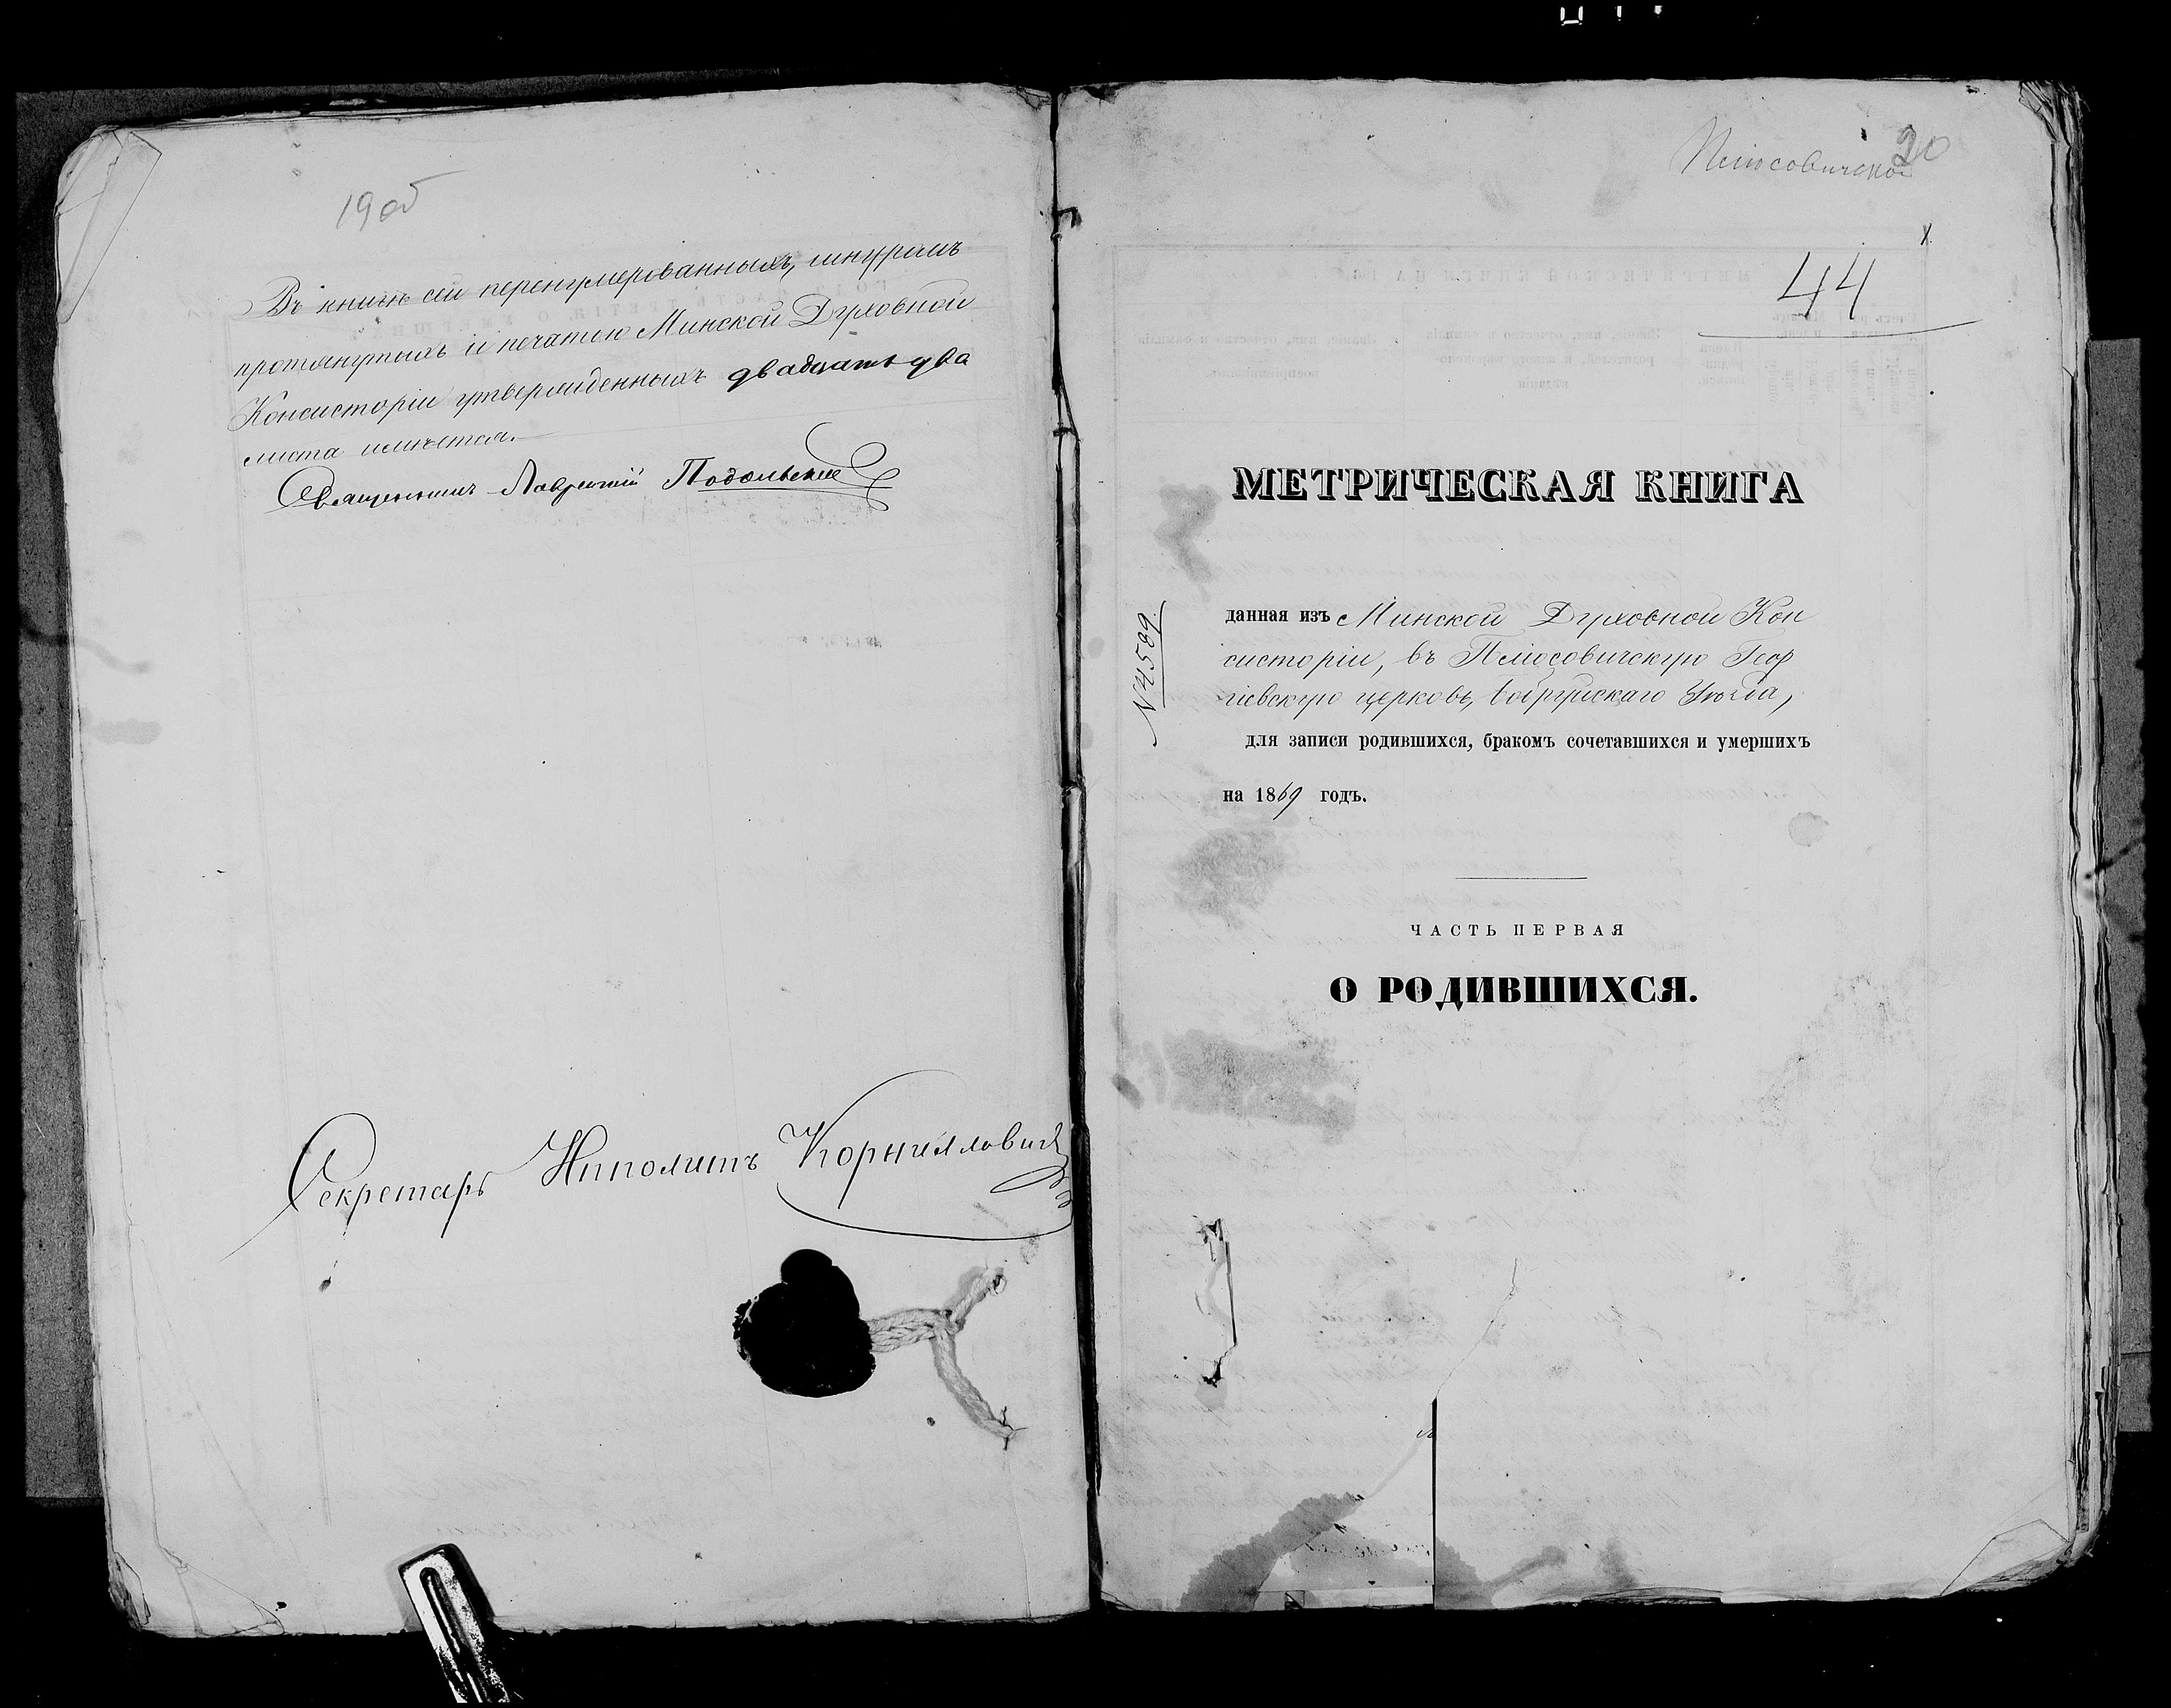 19об
Въ книгѣ сей перенумерованныхъ, шнуромъ
протянутыхъ и печатью Минской Духовной
Консисторіи утвержденныхъ двадцать два
листа имѣется.
Священникъ Лаврентій Подольскій
Секретарь Ипполитъ Корнилловичъ
20
Плюсовичской
44
МЕТРИЧЕСКАЯ КНИГА
№ 4589.
данная изъ Минской Духовной Кон
систоріи, въ Плюсовичскую Геор
гіевскую церковь, Бобруйскаго Уѣзда,
для записи родившихся, бракомъ сочетавшихся и умершихъ
на 1869 годъ.
ЧАСТЬ ПЕРВАЯ
О РОДИВШИХСЯ.